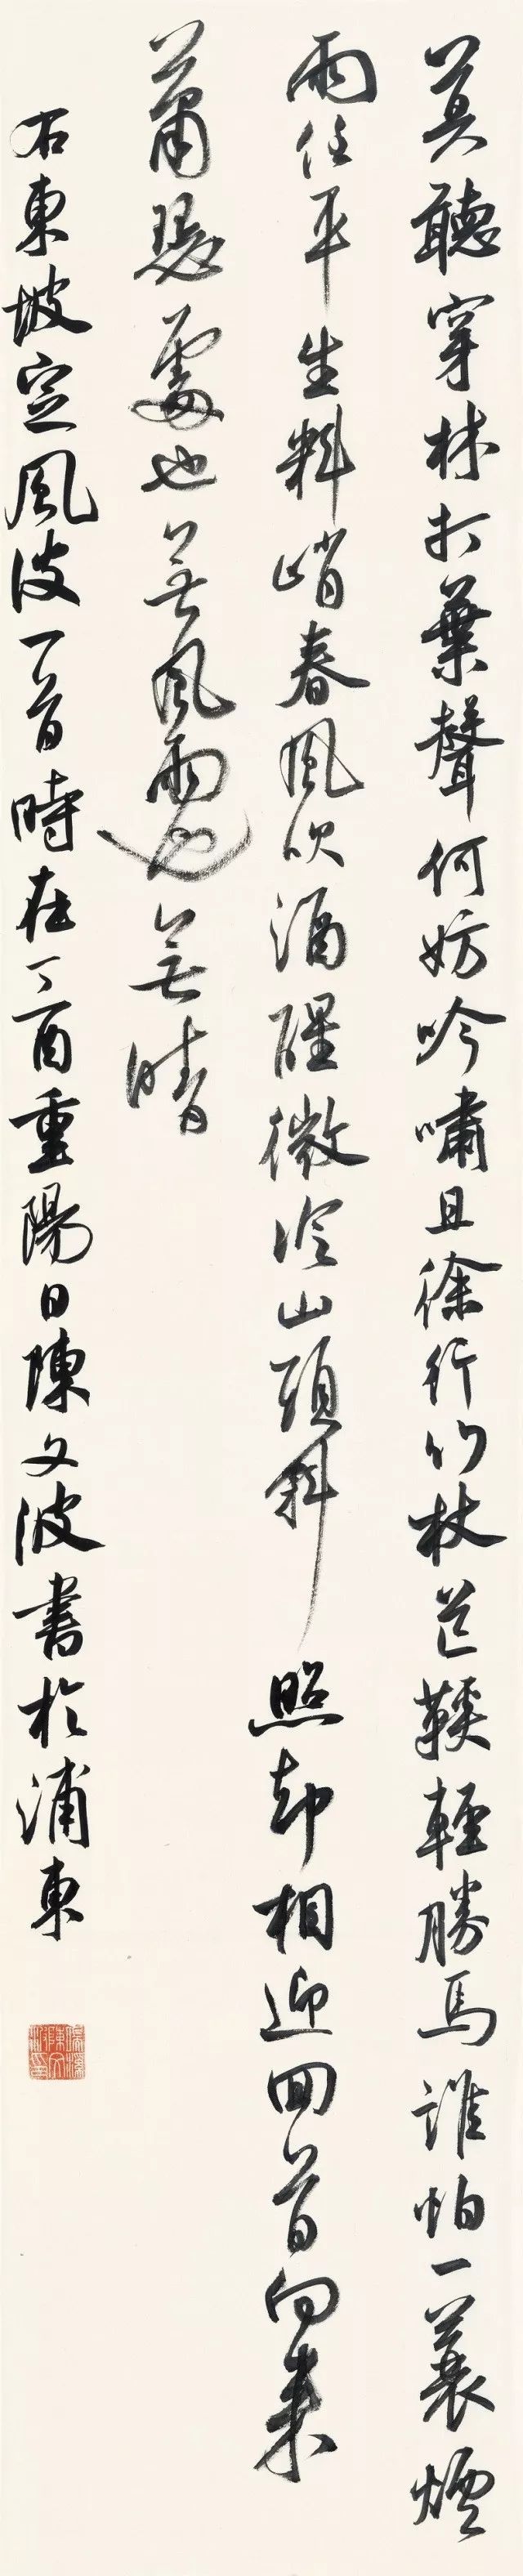 莫聽穿林打葉聲何妨吟嘯且徐行竹杖芒鞵輕勝馬誰怕一蓑煙
雨任平生料峭春風吹酒醒微冷山頭斜照却相迎回首向來
蕭瑟處也無風雨也無晴
右東坡定風波一首時在丁酉重陽日陳文波書於浦東